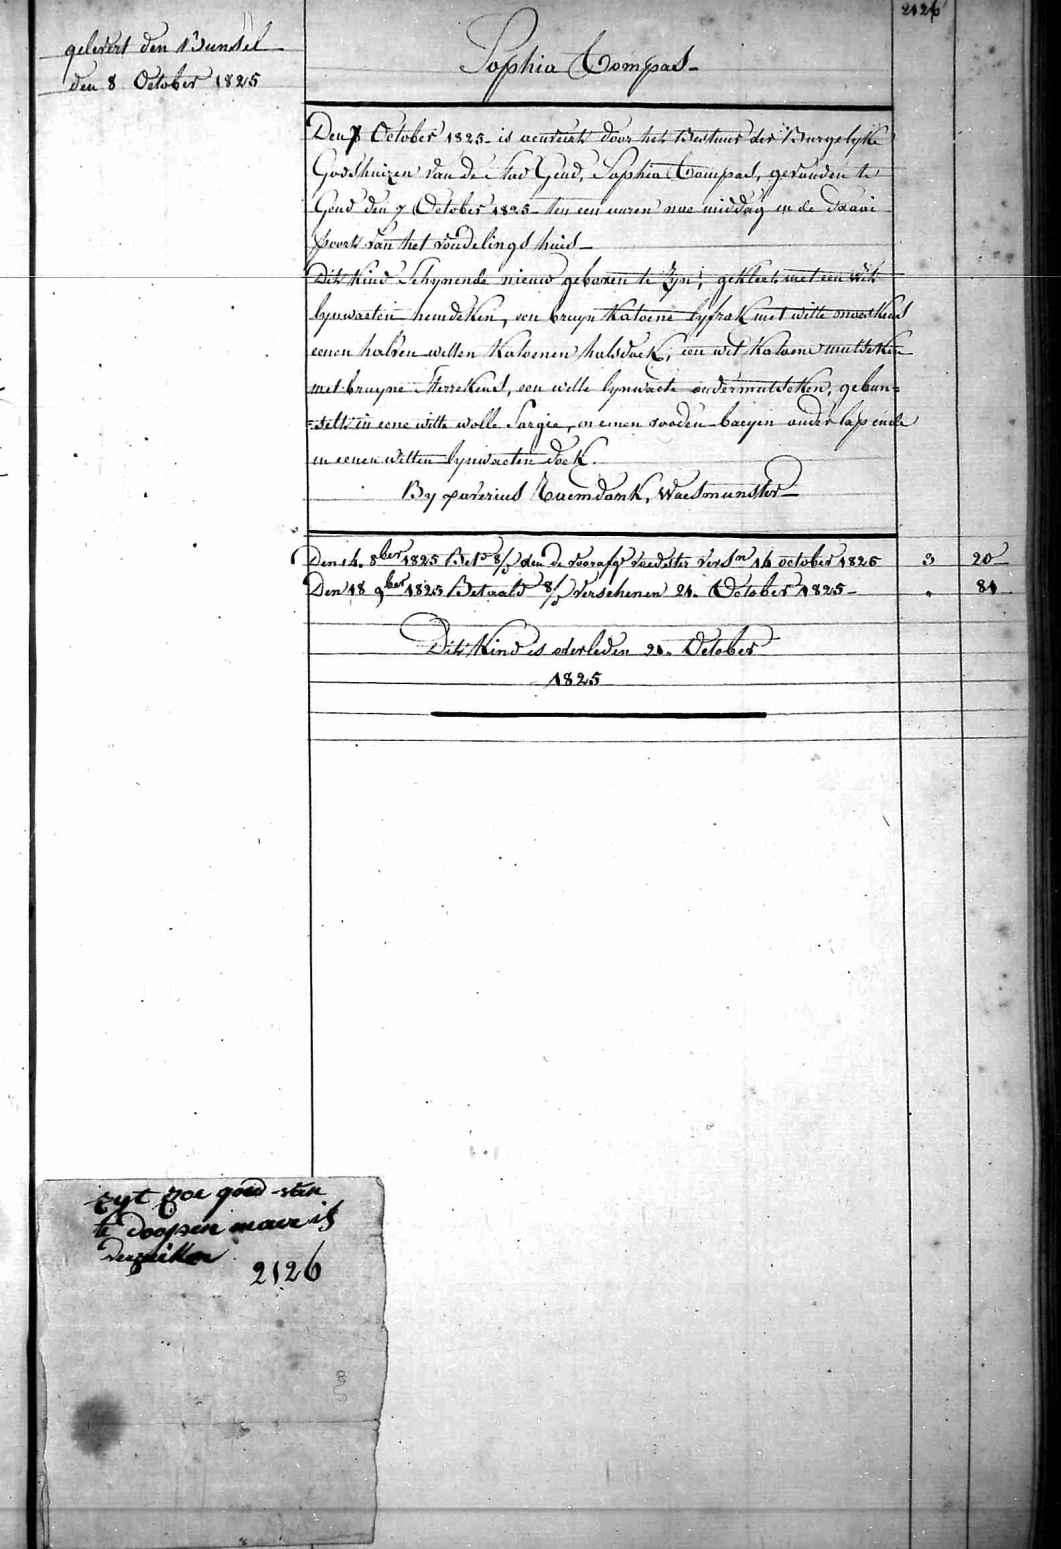 2126
gelevert den Bunsel
den 8 October 1825
Sophia Compas
Den 8 October 1825 is aenveirt door het Bestuer der Burgelyke
Godshuizen van de Stad Gend, Sophia Compas, gevonden te
Gend den 7 October 1825 ten een uuren nae middag in de draai
poort van het vondelings huis
Dit Kind Schynende nieuw geboren te Zyn, gekleet met een wit
lynwaeten hemdeken, een bruyn Katoene lyfrok met witte
eenen halven witten Katoenen halsdoek, een wit Katoene mutseken
met bruyne Sterrekens, een witte lynwaete ondermutseken, gebun=
=selt in eene witte wolle Sargie, en eenen rooden baeyen onder lap ende
in eenen witten lynwaeten doek.
By Waesmunster
Den 14. 8ber 1825 Bet. den de voorafge voedster versn 14 october 1825 3 20
Den 18 9ber 1825 Betaald verschenen 21. October 1825 " 81
Dit Kind is overleden 21. October
1825
zyt zoe goed van
te doopen maer is
2126